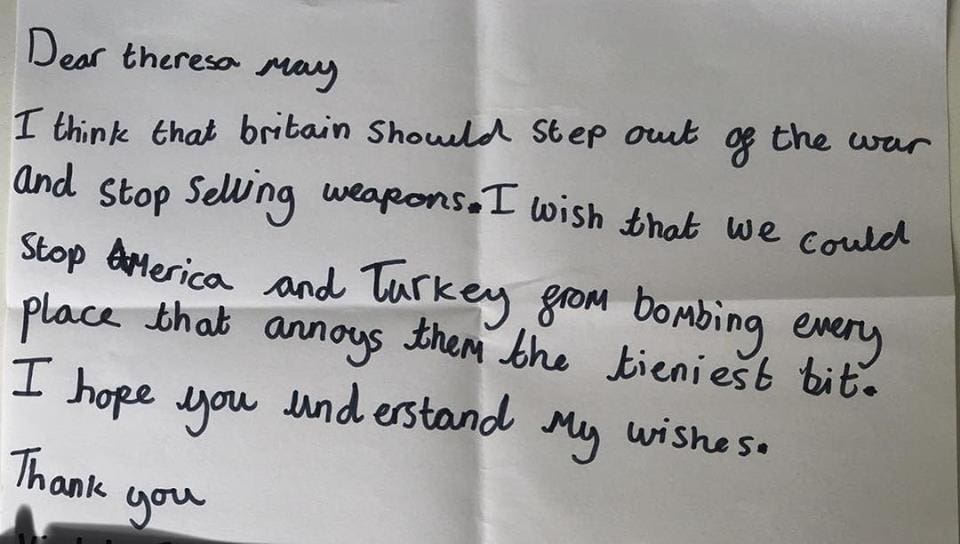 Dear theresa may
I think that britain should step out of the war
and stop selling weapons. I wish that we could
stop America and Turkey from bombing every
place that annoys them the tieniest bit.
I hope you understand my wishes.
Thank you